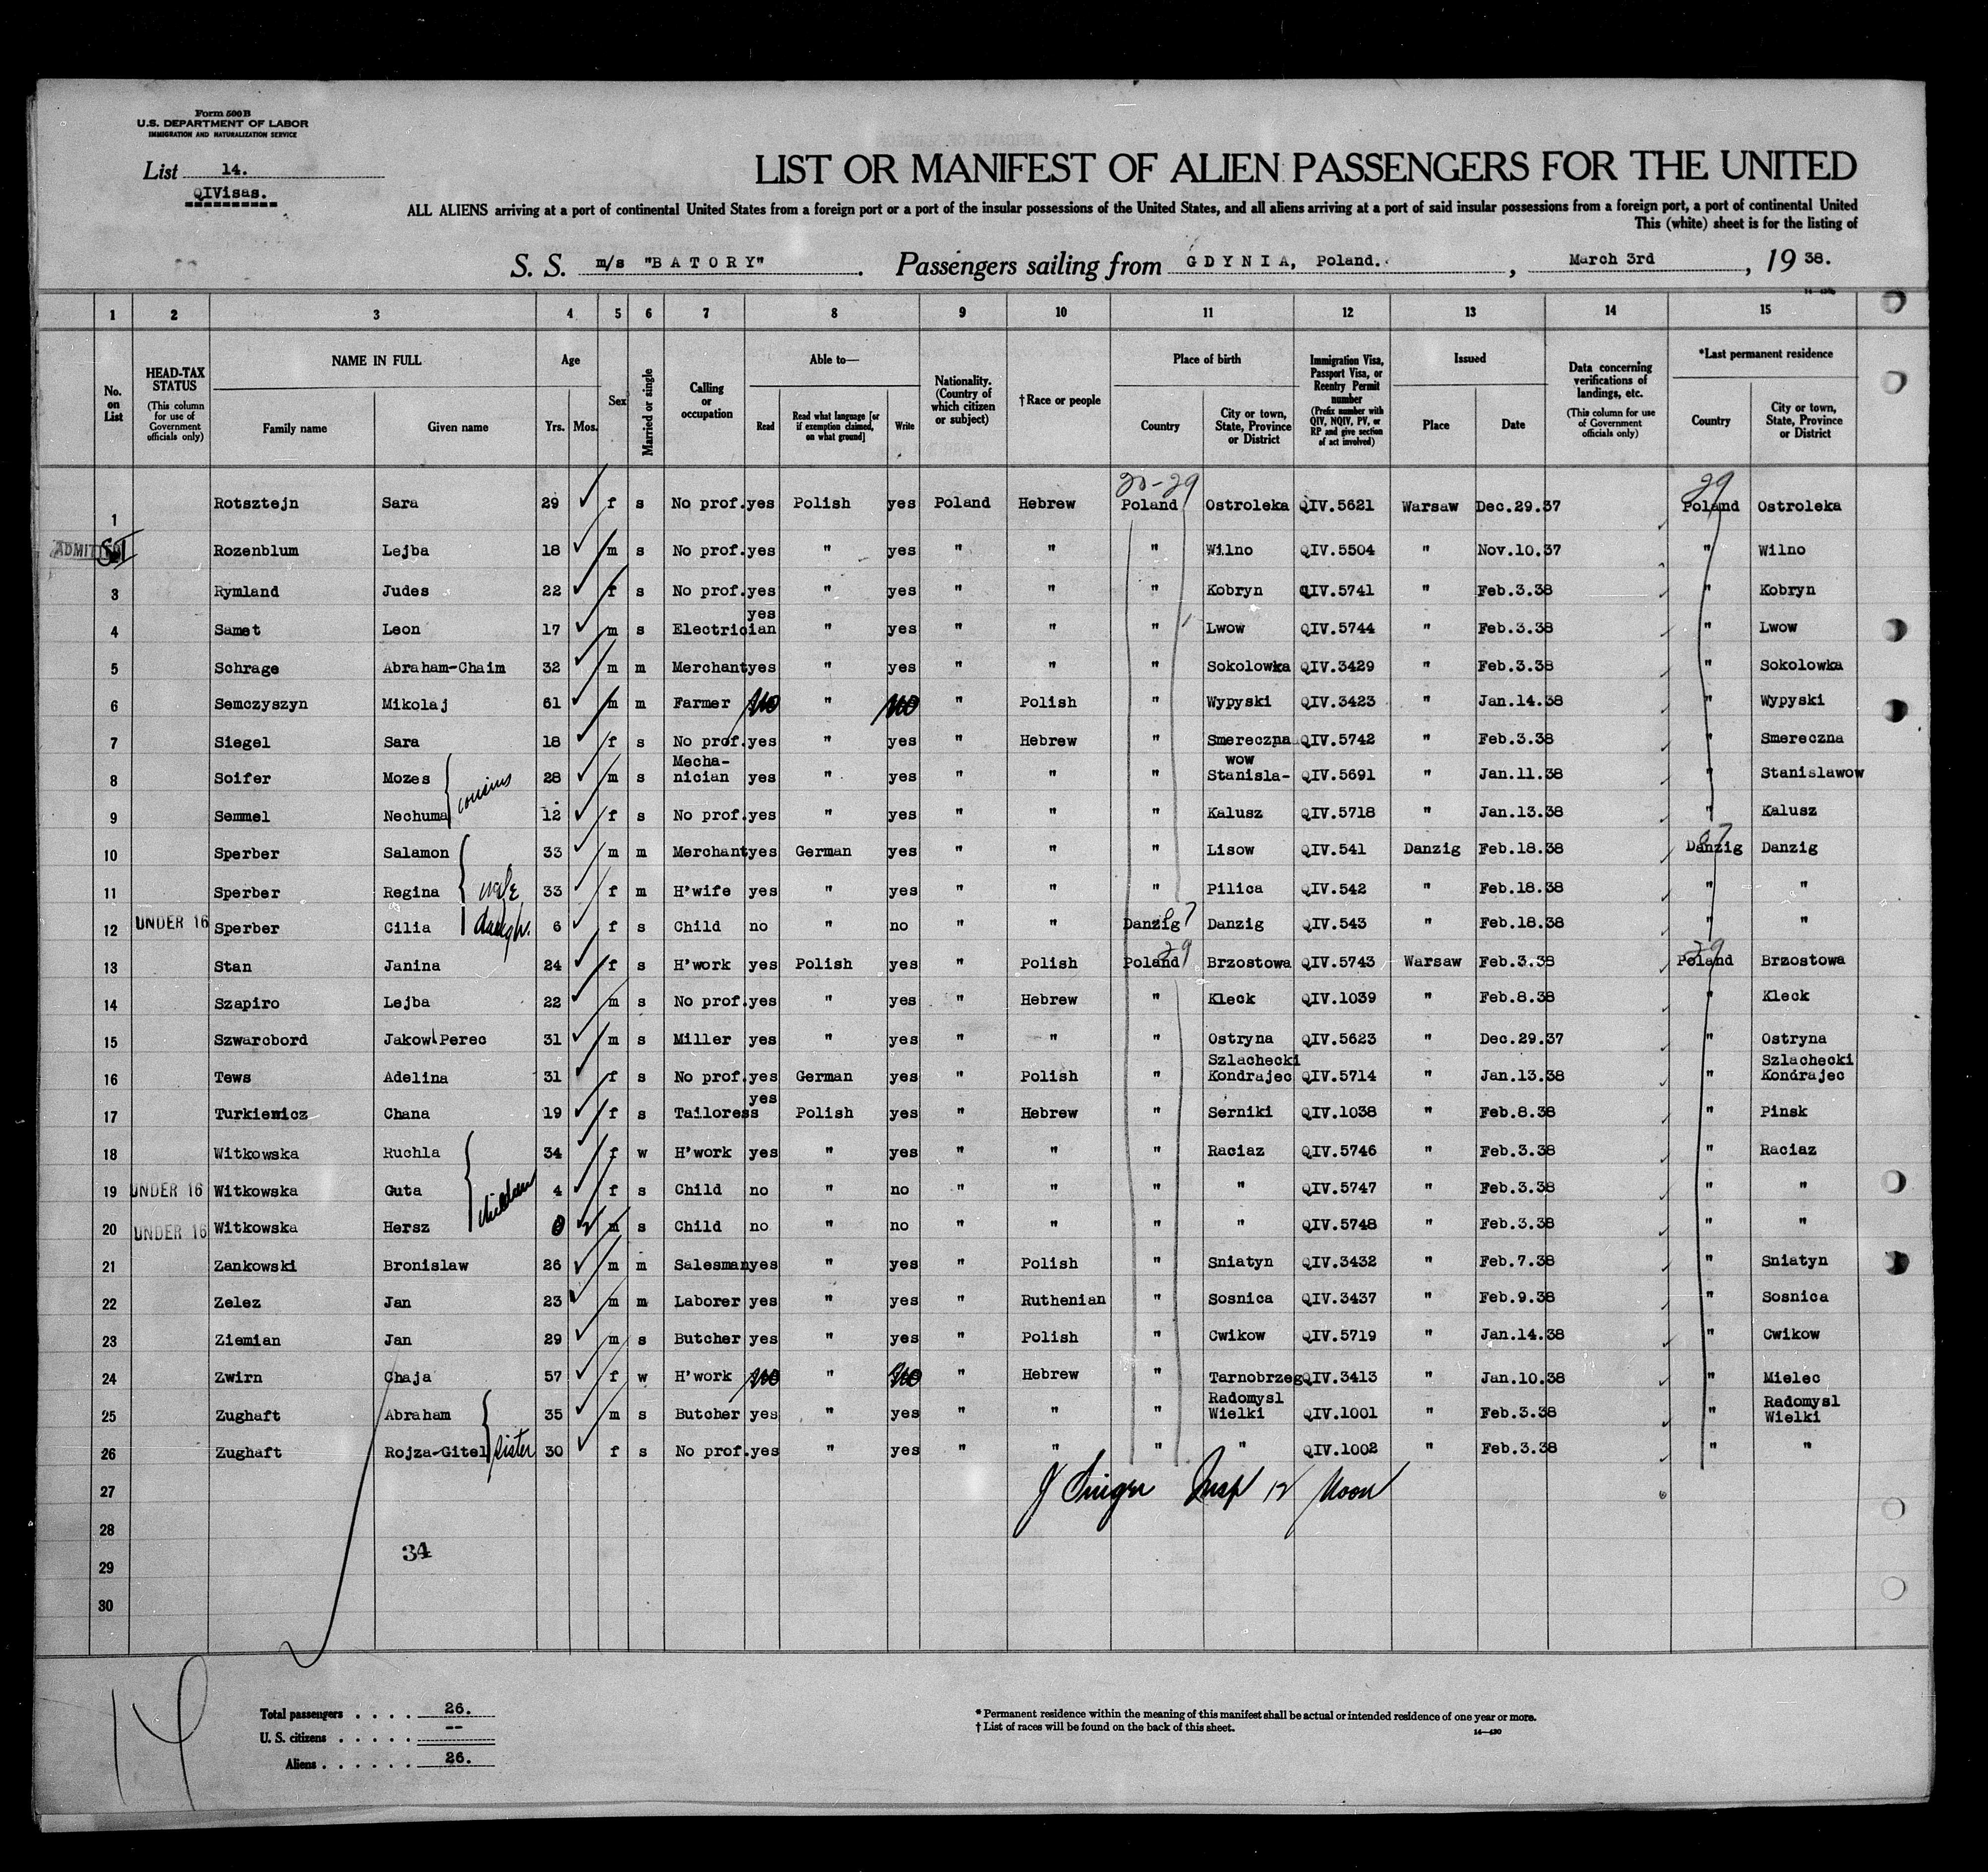 Form 500 B
U.S. DEPARTMENT OF LABOR
IMMIGRATION AND NATURALIZATION SERVICE
List 14.
QIVisas.
LIST OR MANIFEST OF ALIEN PASSENGERS FOR THE UNITED
ALL ALIENS arriving at a port of continental United States from a foreign port or a port of the insular possessions of the United States, and all aliens arriving at a port of said insular possessions from a foreign port, a port of continental United
This (white) sheet is for the listing of
S. S. m/s "BATORY". Passengers sailing from GDYNIA, Poland. , March 3rd , 19 38.
1 2 3 4 5 6 7 8 9 10 11 12 13 14 15
No. on List
HEAD-TAX STATUS (This column for use of Government officials only)
NAME IN FULL
Family name Given name
Age
Yrs. Mos.
Sex
Married or single
Calling or occupation
Able to—
Read
Read what language [or if exemption claimed, on what ground]
Write
Nationality. (Country of which citizen or subject)
†Race or people
Place of birth
Country
City or town, State, Province or District
Immigration Visa, Passport Visa, or Reentry Permit number (Prefix number with QIV, NQIV, PV, or RP and give section of act involved)
Issued
Place Date
Data concerning verifications of landings, etc. (This column for use of Government officials only)
*Last permanent residence
Country
City or town, State, Province or District
20-29 29
1 Rotsztejn Sara 29 f s No prof. yes Polish yes Poland Hebrew Poland Ostroleka QIV.5621 Warsaw Dec.29.37 Poland Ostroleka
ADMITTED SI Rozenblum Lejba 18 m s No prof. yes " yes " " " Wilno QIV.5504 " Nov.10.37 " Wilno
3 Rymland Judes 22 f s No prof. yes " yes " " " Kobryn QIV.5741 " Feb.3.38 " Kobryn
4 Samet Leon 17 m s Electrician yes " yes " " " Lwow QIV.5744 " Feb.3.38 " Lwow
5 Schrage Abraham-Chaim 32 m m Merchant yes " yes " " " Sokolowka QIV.3429 " Feb.3.38 " Sokolowka
6 Semczyszyn Mikolaj 61 m m Farmer no " no " Polish " Wypyski QIV.3423 " Jan.14.38 " Wypyski
7 Siegel Sara 18 f s No prof. yes " yes " Hebrew " Smereczna QIV.5742 " Feb.3.38 " Smereczna
8 Soifer Mozes cousins 28 m s Mecha-nician yes " yes " " " Stanisla-wow QIV.5691 " Jan.11.38 " Stanislawow
9 Semmel Nechuma 12 f s No prof. yes " yes " " " Kalusz QIV.5718 " Jan.13.38 " Kalusz
10 Sperber Salamon 33 m m Merchant yes German yes " " " Lisow QIV.541 Danzig Feb.18.38 Danzig Danzig
11 Sperber Regina wife 33 f m H'wife yes " yes " " " Pilica QIV.542 " Feb.18.38 " "
12 UNDER 16 Sperber Cilia daugh. 6 f s Child no " no " " Danzig Danzig QIV.543 " Feb.18.38 " "
29 29
13 Stan Janina 24 f s H'work yes Polish yes " Polish Poland Brzostowa QIV.5743 Warsaw Feb.3.38 Poland Brzostowa
14 Szapiro Lejba 22 m s No prof. yes " yes " Hebrew " Kleck QIV.1039 " Feb.8.38 " Kleck
15 Szwarcbord Jakow Perec 31 m s Miller yes " yes " " " Ostryna QIV.5623 " Dec.29.37 " Ostryna
16 Tews Adelina 31 f s No prof. yes German yes " Polish " Szlachecki Kondrajec QIV.5714 " Jan.13.38 " Szlachecki Kondrajec
17 Turkienicz Chana 19 f s Tailoress yes Polish yes " Hebrew " Serniki QIV.1038 " Feb.8.38 " Pinsk
18 Witkowska Ruchla 34 f w H'work yes " yes " " " Raciaz QIV.5746 " Feb.3.38 " Raciaz
19 UNDER 16 Witkowska Guta children 4 f s Child no " no " " " " QIV.5747 " Feb.3.38 " "
20 UNDER 16 Witkowska Hersz m s Child no " no " " " " QIV.5748 " Feb.3.38 " "
21 Zankowski Bronislaw 26 m m Salesman yes " yes " Polish " Sniatyn QIV.3432 " Feb.7.38 " Sniatyn
22 Zelez Jan 23 m m Laborer yes " yes " Ruthenian " Sosnica QIV.3437 " Feb.9.38 " Sosnica
23 Ziemian Jan 29 m s Butcher yes " yes " Polish " Cwikow QIV.5719 " Jan.14.38 " Cwikow
24 Zwirn Chaja 57 f w H'work no " no " Hebrew " Tarnobrzeg QIV.3413 " Jan.10.38 " Mielec
25 Zughaft Abraham 35 m s Butcher yes " yes " " " Radomysl Wielki QIV.1001 " Feb.3.38 " Radomysl Wielki
26 Zughaft Rojza-Gitel sister 30 f s No prof. yes " yes " " " " QIV.1002 " Feb.3.38 " "
27 J Singer Insp 12 Noon
28
29 34
30
14
Total passengers . . . . 26.
U. S. citizens . . . . . --
Aliens . . . . . . 26.
* Permanent residence within the meaning of this manifest shall be actual or intended residence of one year or more.
† List of races will be found on the back of this sheet.
14—430